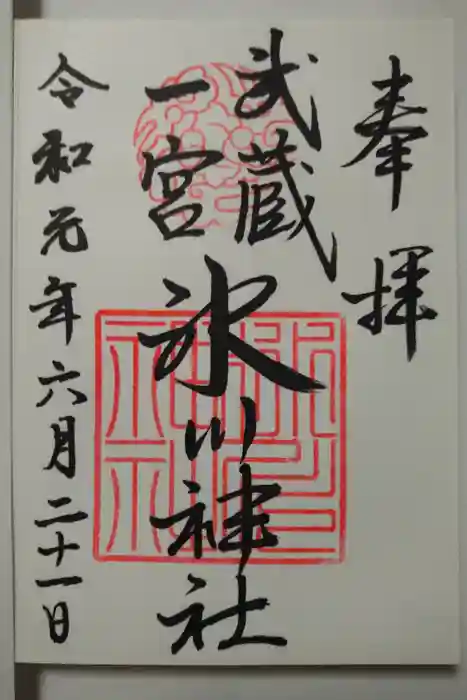 奉拝
武蔵
一宮
氷川神社
令和元年六月二十一日